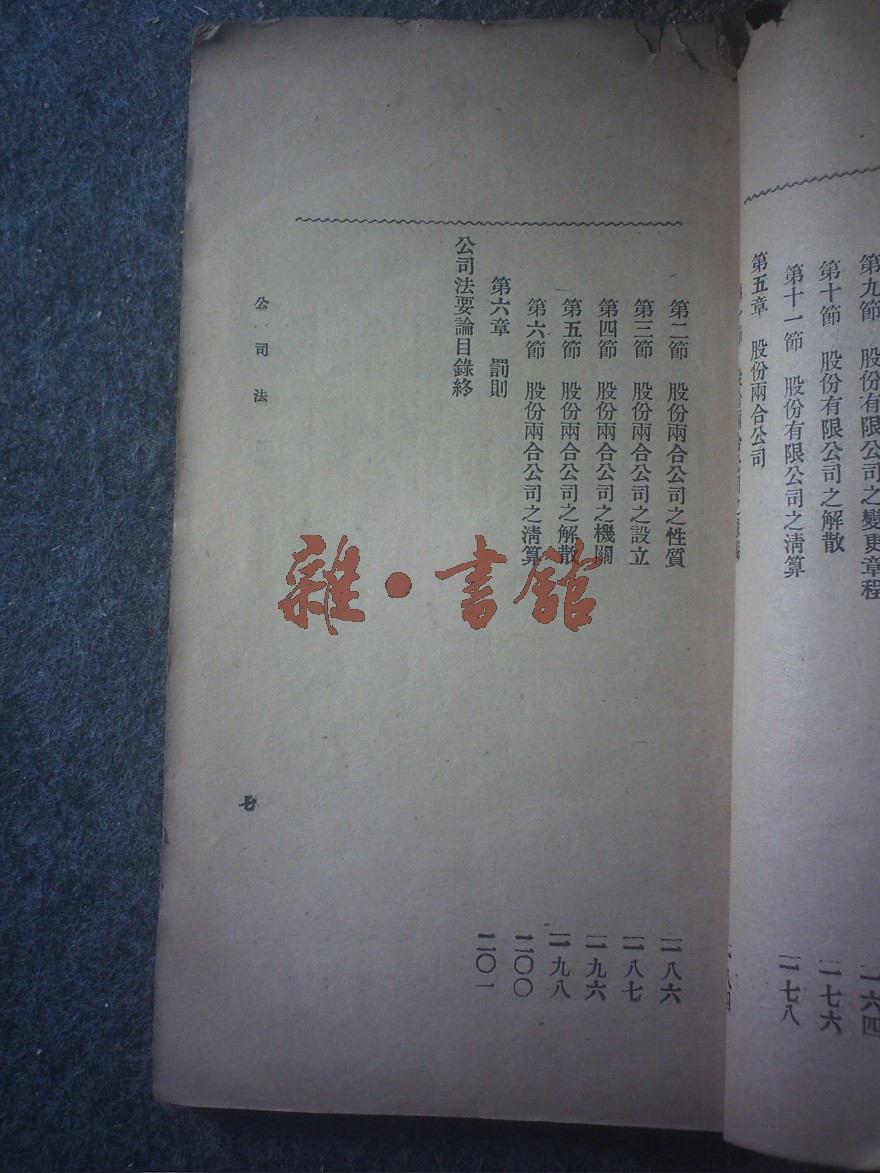 第九節　股份有限公司之變更章程　一六四
第十節　股份有限公司之解散　一七六
第十一節　股份有限公司之淸算　一七八
第五章　股份兩合公司
第二節　股份兩合公司之性質　一八六
第三節　股份兩合公司之設立　一八七
第四節　股份兩合公司之機關　一九六
第五節　股份兩合公司之解散　一九八
第六節　股份兩合公司之淸算　二〇〇
第六章　罰則　二〇一
公司法要論目錄終
公司法　七
雜·書館